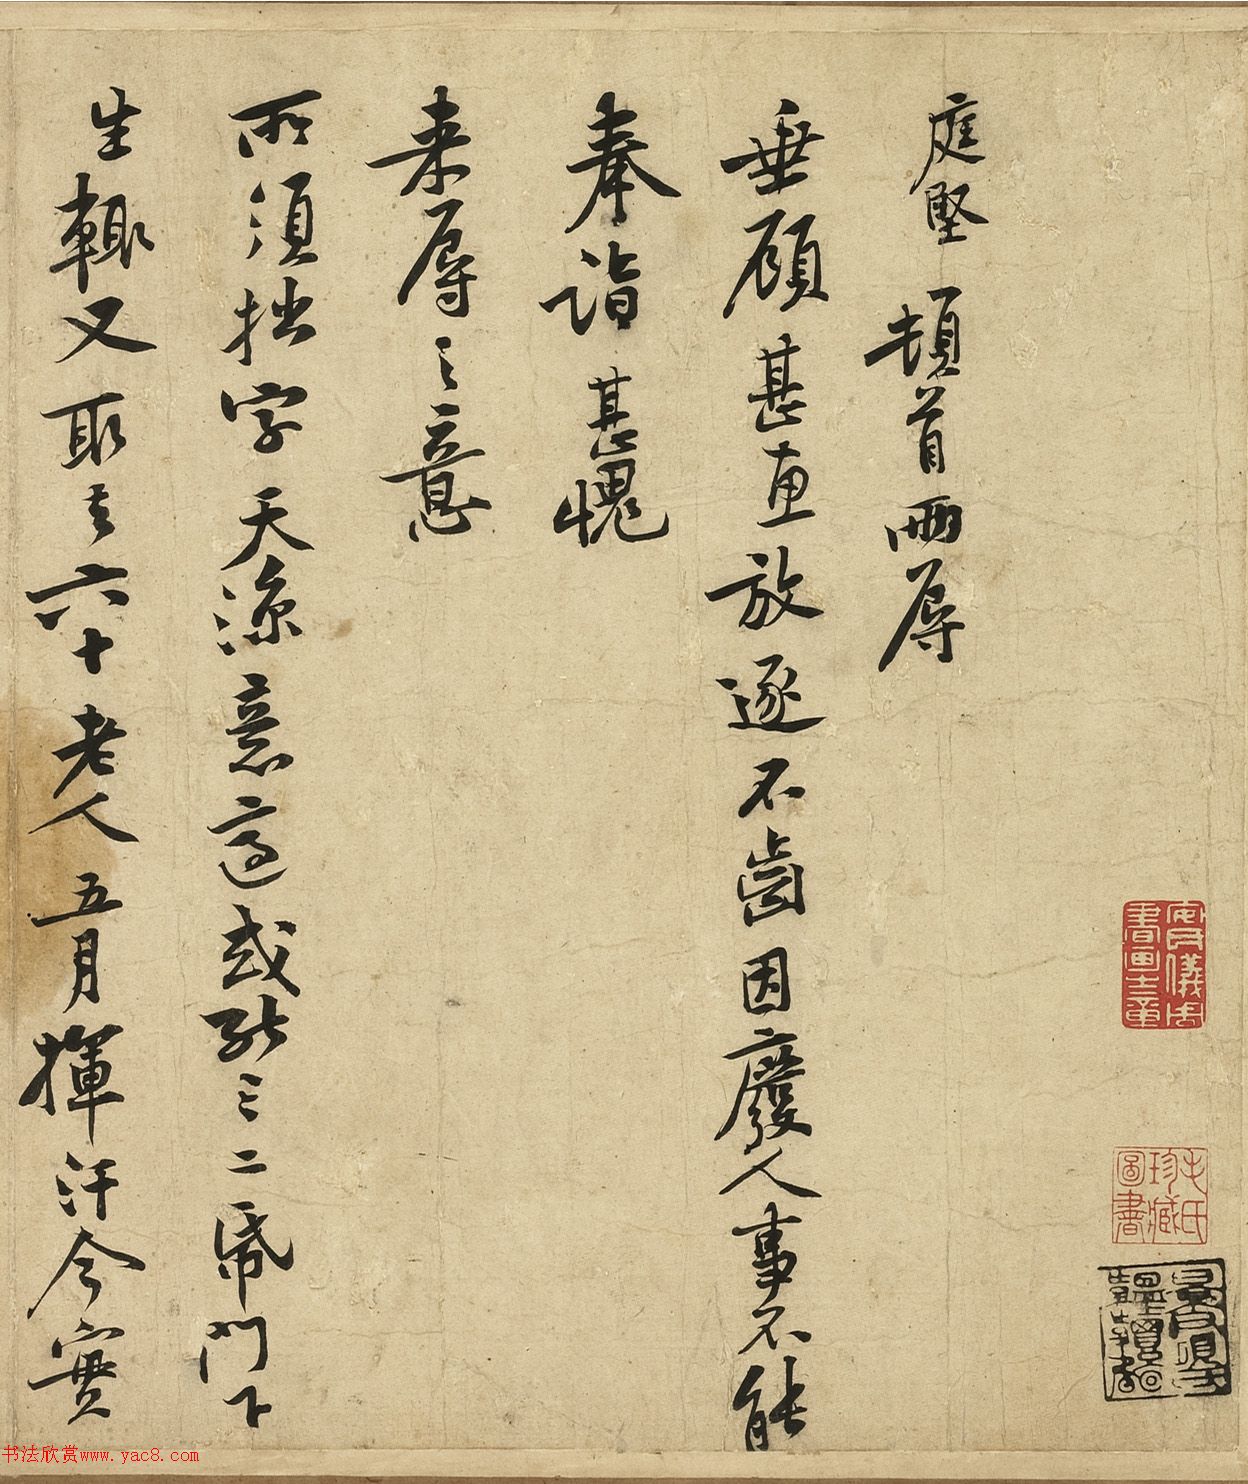 庭堅頓首兩辱
垂顧甚惠放逐不齒因廢人事不能
奉詣甚愧
来辱之意
所須拙字天涼意適或能三二帋門下
生輒又取去六十老人五月揮汗今實
安儀周書畫之章
珍藏圖書
书法欣赏www.yac8.com